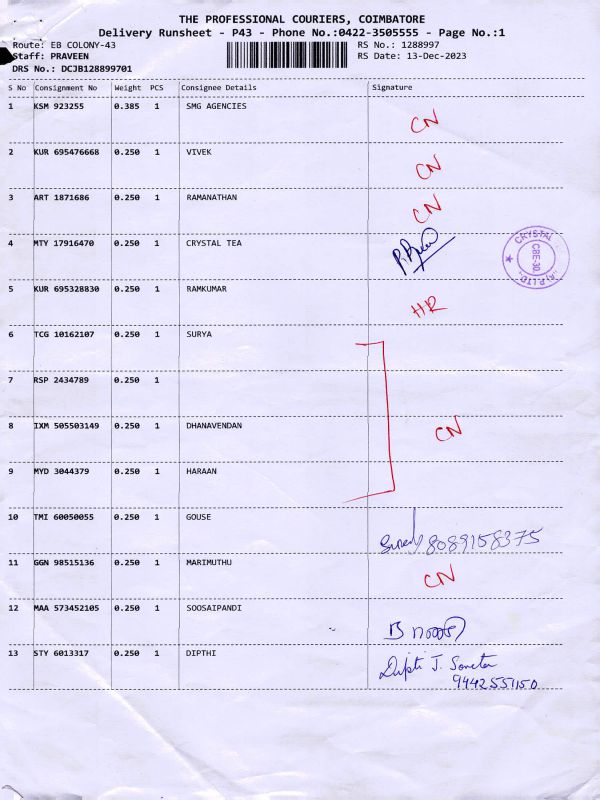 THE PROFESSIONAL COURIERS, COIMBATORE
Delivery Runsheet - P43 - Phone No.:0422-3505555 - Page No.:1
Route: EB COLONY-43 RS No.: 1288997
Staff: PRAVEEN RS Date: 13-Dec-2023
DRS No.: DCJB128899701
S No Consignment No Weight PCS Consignee Details Signature
1 KSM 923255 0.385 1 SMG AGENCIES
CN
2 KUR 695476668 0.250 1 VIVEK
CN
3 ART 1871686 0.250 1 RAMANATHAN
CN
4 MTY 17916470 0.250 1 CRYSTAL TEA
CRYSTAL
CBE-30.
5 KUR 695328830 0.250 1 RAMKUMAR
HR
6 TCG 10162107 0.250 1 SURYA
7 RSP 2434789 0.250 1
8 IXM 505503149 0.250 1 DHANAVENDAN
CN
9 MYD 3044379 0.250 1 HARAAN
10 TMI 60050055 0.250 1 GOUSE
8089158375
11 GGN 98515136 0.250 1 MARIMUTHU
CN
12 MAA 573452105 0.250 1 SOOSAIPANDI
B
13 STY 6013317 0.250 1 DIPTHI
Dipti J.
9442551150